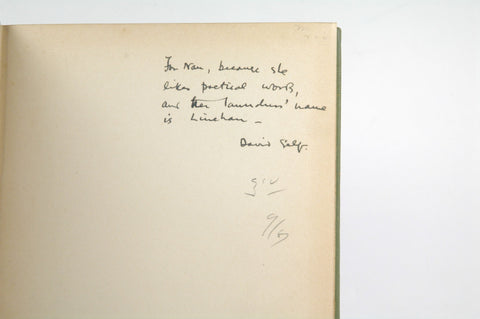 For Nan, because she
likes poetical works,
and her laundress' name
is Linehan –
David Self.